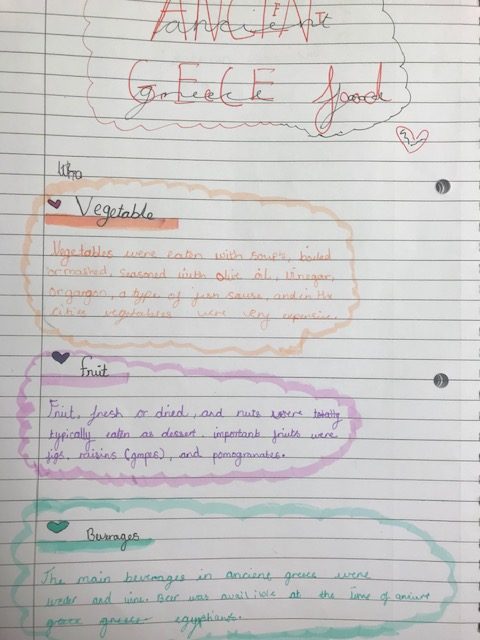 ANCIENT
ancient
GEECE food
greece
Who
Vegetable
Vegetables were eaten with soups, boiled
or mashed, seasoned with olive oil, vinegar,
or gargon, a type of sauce, and in the
vegetables were very expensive.
fruit
Fruit, fresh or dried, and nuts were totally
typically eaten as dessert. important fruits were
figs, raisins (grapes), and pomogranates.
Beverages
The main beverages in ancient greece were
water and wine. Beer was available at the time of
greece egyptians.